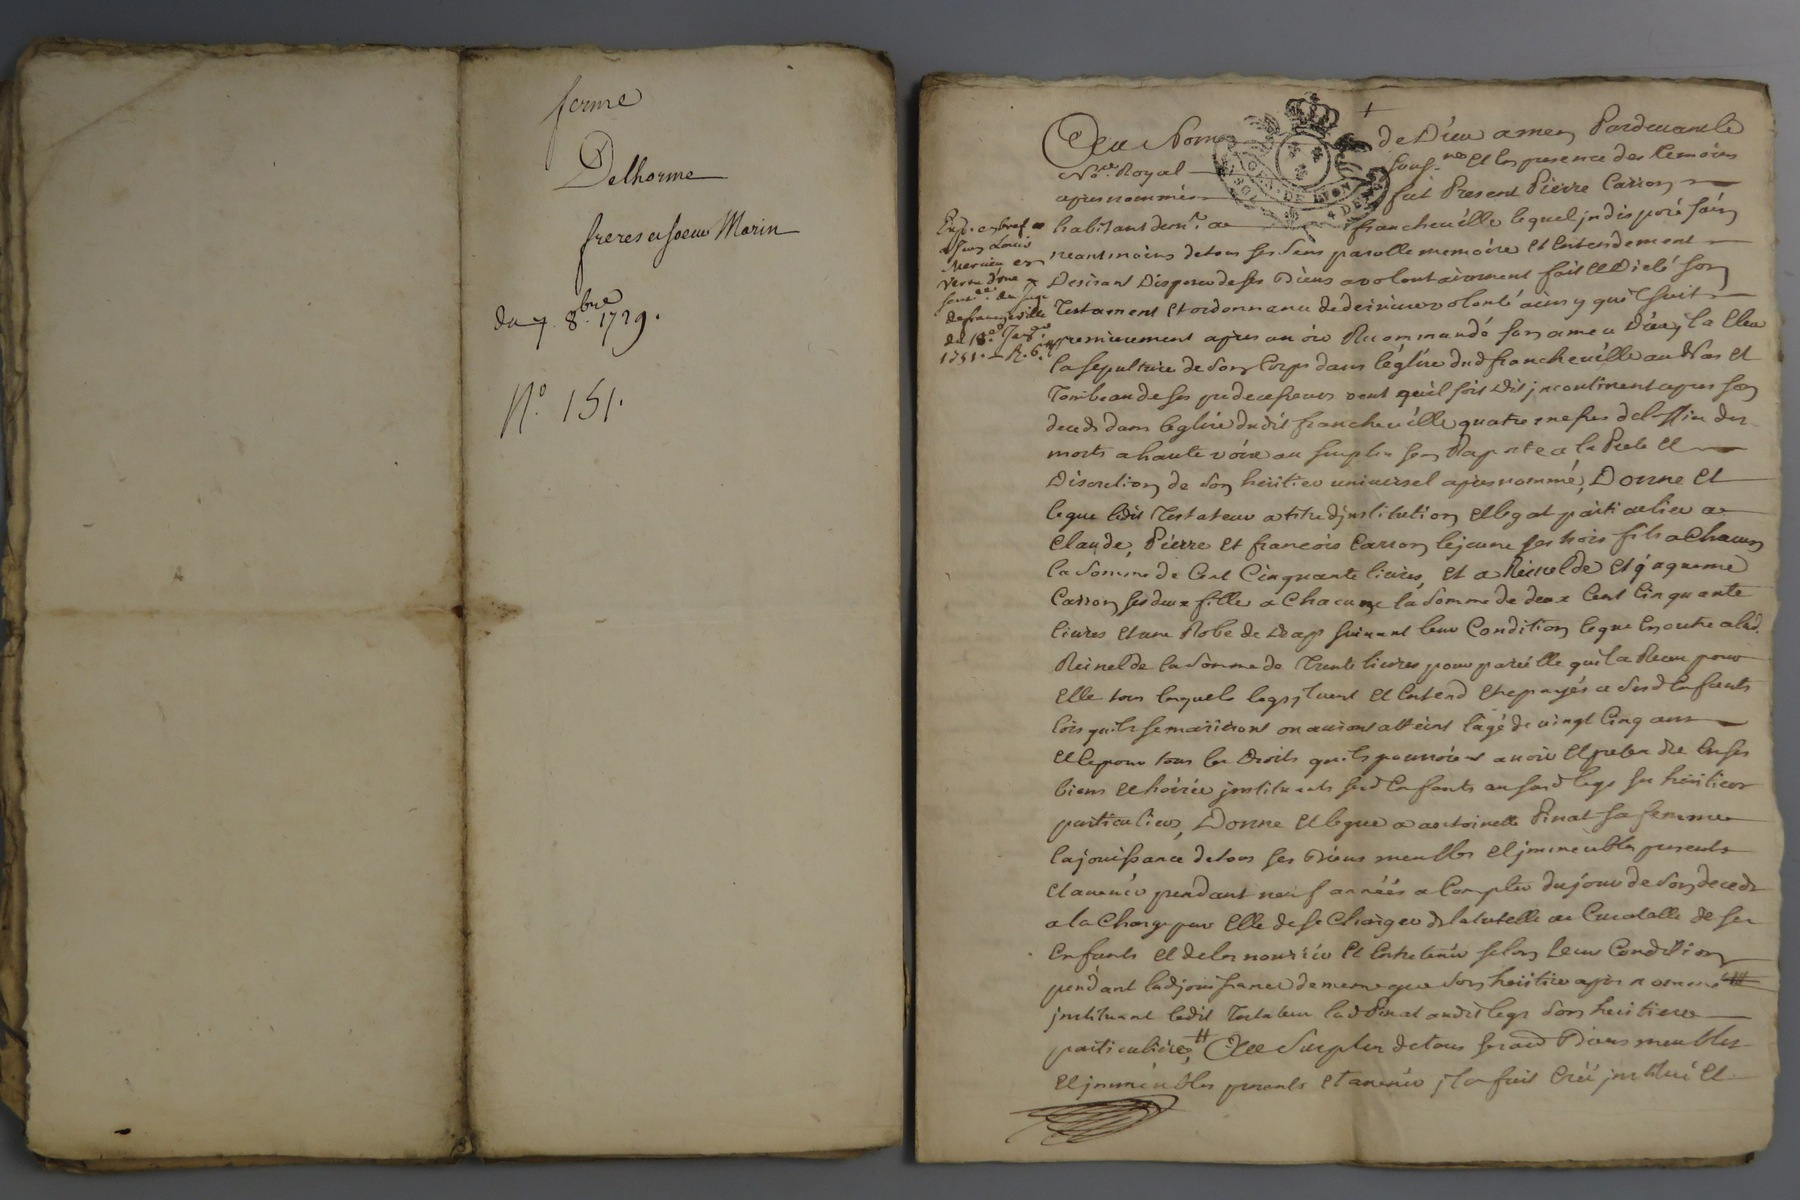 ferme
Delhorme
freres et soeur Marin
du 7. 8.bre 1729.
N.o 151.
Au Nom de Dieu amen Pardevant le
No.re Royal sous.né et les presence des temoins
apres nommés fut Present Pierre Carron
habitant dem.t a francheville lequel jndisposé
neantmoins de tous ses sens parolle memoire et Entendement
Desirant Disposer de ses Biens a volontairement fait et Dicté son
Testament et ordonnance de derniere volonté ainsy qui suit
premierement apres avoir Recommandé son ame a Dieu, jl a Eleu
la sepulture de son Corps dans leglise dud francheville au Vas Et
Tombeau de ses predecesseurs veut quil soit Dit jncontinent apres son
deceds dans leglise dudit francheville quatre messes de loffice des
morts a haute voix au surplus sen Raporte a la Pieté Et
Discretion de son heritier universel apres nommé, Donne Et
legue ledit Testateur a titre djnstitution Et legat particulier a
Claude, Pierre Et francois Carron lejeune ses trois fils a Chacun
la somme de Cent Cinquante livres, Et a Reinelde Et
Carron ses deux filles a Chacune la somme de deux Cent Cinquante
livres Et une Robe de Drap suivant leur Condition legue En outre a lad.
Reinelde la somme de Trente livres pour pareille quil a Receu pour
Elle tous lesquels legs jl veut Et Entend Etre payés a sesd Enfants
lors quils se mariront ou auront atteint lagé de vingt Cinq ans
Et le pour tous les Droits quils pourroient avoir Et pretendre En ses
biens Et hoirie jnstituants sesd Enfants ausd legs ses heritiers
particuliers, Donne Et legue a antoinette Pinat sa femme
la jouissance de tous ses Biens meubles Et jmmeubles presents
Et avenir pendant neuf années a Compter du jour de son deceds
a la Charge par Elle de se Charger de la tutelle ou Curatelle de ses
Enfants Et de les nourrir Et Entretenir selon leur Condition
pendant lad jouissance de meme que son heritier apres nommé #
jnstituant ledit Testateur lad Pinat audit legs son heritiere
particuliere, # Au Surplus de tous ses Biens meubles
Et jmmeubles presents Et avenir jl a fait Créé jnstitué Et
Louis
Mercier en
vertu d'une
sent.ce du juge
de francheville
du 18.e
1751.